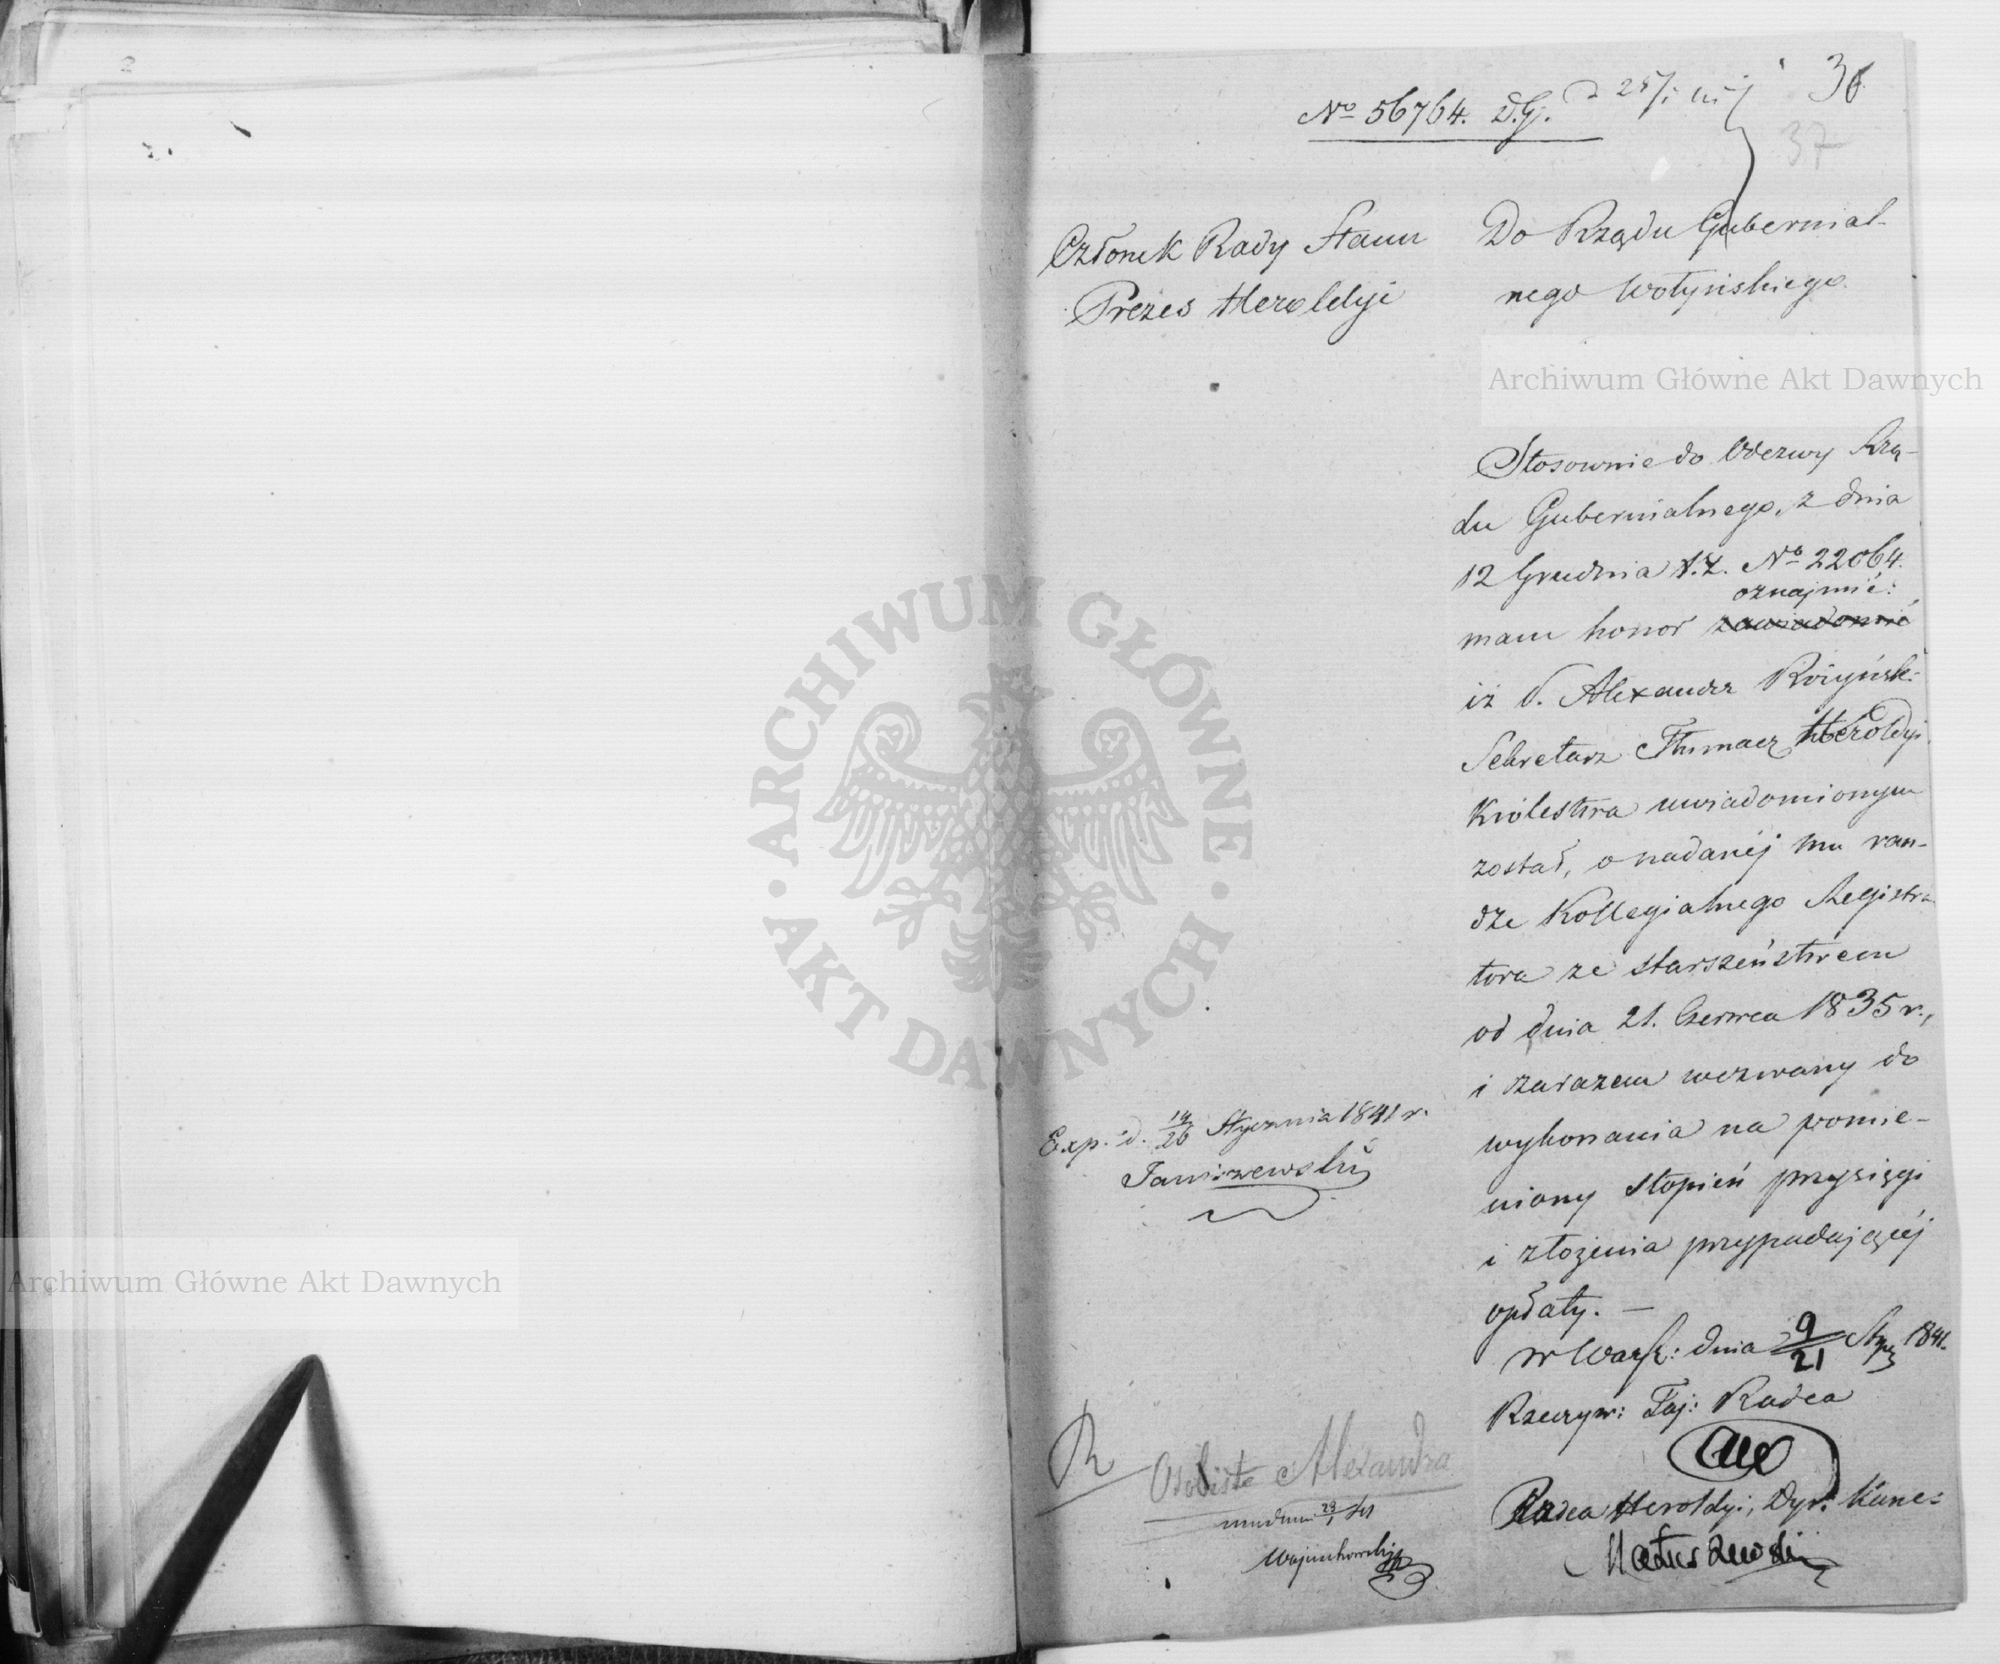 2
36
37
No 56764. D.G.
Członek Rady Stanu
Prezes Heroldyi
Do Rządu Gubernial-
nego Wołyńskiego.
Archiwum Główne Akt Dawnych
Stosownie do Odezwy Rzą-
du Gubernialnego, z dnia
12 Grudnia r.z. No 22064.
oznajmić:
mam honor zawiadomić
iż P. Alexander Różyńsk:
Sekretarz Tłumacz Heroldyi
Królestwa uwiadomionym
został, o nadanéj mu ran-
dze Kollegialnego Registra-
tora ze starszeństwem
od dnia 21. Czerwca 1835 r.,
i zarazem wezwany do
wykonania na pomie-
niony stopień przysięgi
i złożenia przypadającéj
opłaty. —
w Warsz: dnia 9/21 Stycz 1841.
Rzeczyw: Taj: Radca
Radca Heroldyi, Dyr: Kanc:
Matuszewski
Exp. d. 14/26 Stycznia 1841 r.
Janiszewski
R
Osobiste Alexandra
Wojciechowski
ARCHIWUM GŁÓWNE · AKT DAWNYCH ·
Archiwum Główne Akt Dawnych